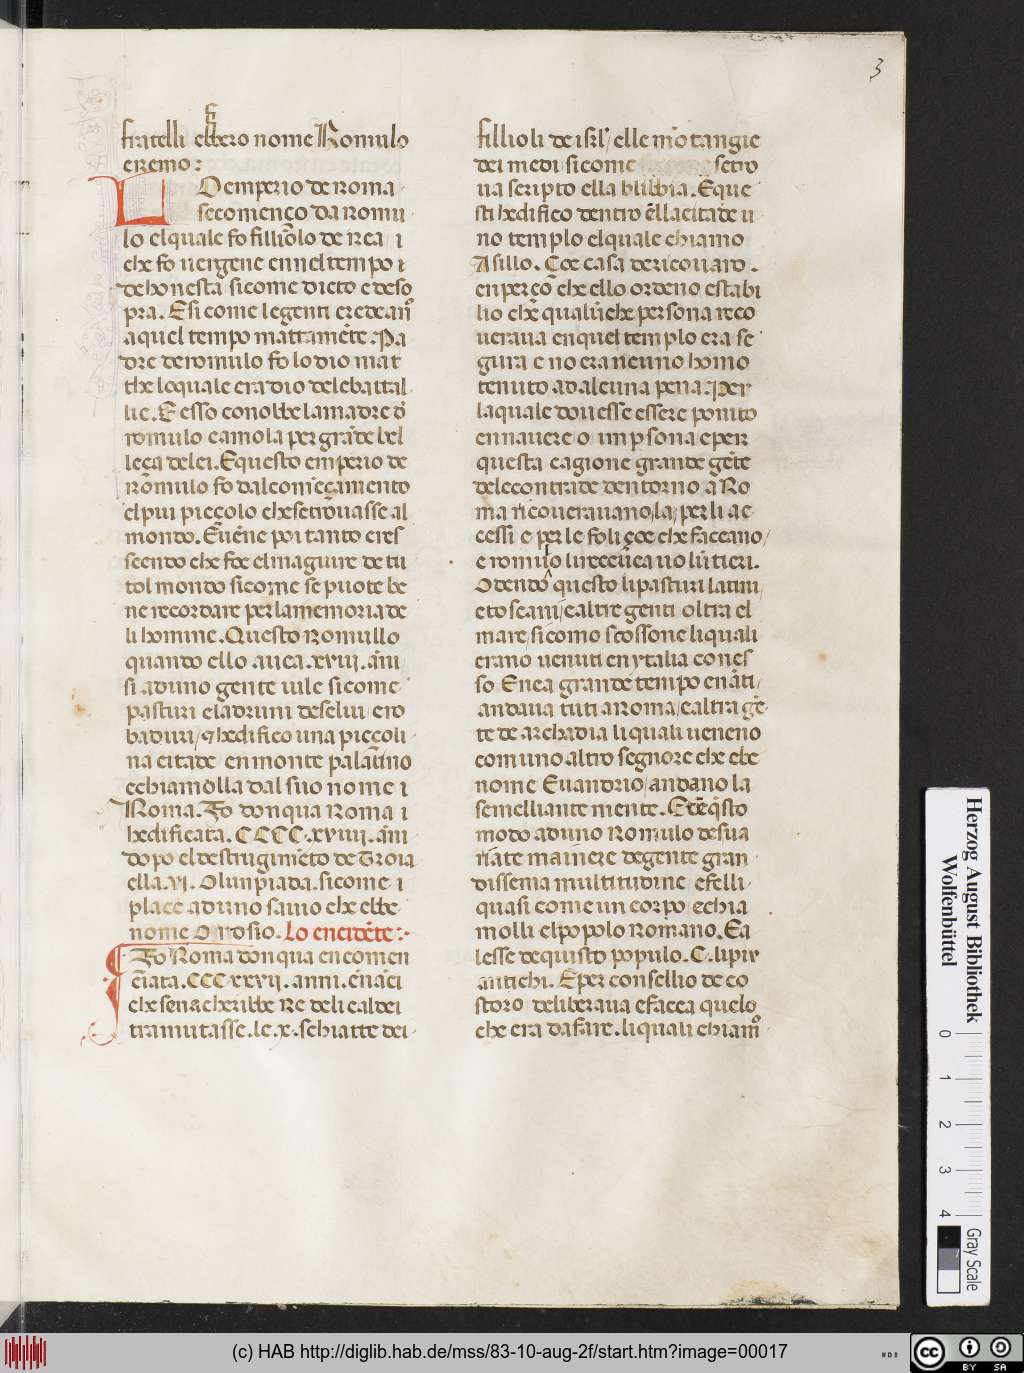 3
fratelli ebbero nome Romulo
eremo:
LO emperio de roma
se començo da romu
lo el quale fo fillio̅lo de rea i
che fo uergene en nel tempo i
de honesta sicome dicto e de so
pra. E si come le genti credean̅o
a quel tempo mattame̅te. Pa
dre de romulo fo lo dio mar
the lo quale era dio dele battal
lie. E esso conobbe la madre d̅
romulo e amola per gra̅de bel
leça de lei. E questo emperio de
ro̅mulo fo dal come̅çamento
el piu piccolo che se trouasse al
mondo. E ue̅ne poi tanto cres
scendo che foe el magiure de tu
tol mondo sicome se puote be
ne recordare per la memoria de
li homine. Questo romullo
quando ello auea .xviii. a̅ni
si aduno gente uile sicome
pasturi e ladruni de selui e ro
baduri / et hedifico una piccoli
na citade en monte pala̅tino
e chiamolla dal suo nome i
Roma. Fo donqua Roma i
hedificata. CCCC.xviiii. a̅ni
dopo el destrugime̅to de Troia
ella .vi. Olimpiada. sicome i
place ad uno sauio che ebbe
nome Orosio. Lo encide̅te:
Fo Roma do̅nqua encomen
c̅iata. CCC.xxxvii. anni. e̅na̅ci
che senacheribbe re deli caldei
tramutasse. le .x. schiatte dei
fillioli de isr̅l / elle mo̅tangie
dei medi sicome se tro
ua scripto ella blibbia. E que
sti hedifico dentro e̅lla citade u
no templo el quale chiamo
Asillo. Çoe casa de ricouaro.
en perço̅ che ello ordeno e stabi
lio che̅ qualu̅che persona reco
uraua en quel templo era se
gura e no era neuno homo
tenuto ad alcuna pena. Per
la quale douesse essere ponito
en nauere o im psona e per
questa cagione grande ge̅te
dele contrade dentorno a Ro
ma ricouerauano, la, per li ac
cessi e per le foli çoe che faceano /
e romulo li receue̅a uolu̅tieri.
Odendo questo li pasturi latini /
e toscani / e altre genti oltra el
mare / sicomo scossone li quali
erano uenuti en ytalia co nes
so Enea grande tempo ena̅ti /
andaua tuti a Roma / e altra ge̅
te de archadia li quali ueneno
com uno altro segnore che ebe
nome Euandrio / andano la
semelliante mente. E de̅ q̅sto
modo aduno Romulo de sua
ri̅ate mainere de gente gran
dissema multitudine e felli
quasi come un corpo / e chia
molli el popolo Romano. E a
lesse de quisto populo. C. li piu
antichi. E per consellio de co
storo deliberaua e facea quelo
che era da fare. li quali chiam̅o
Herzog August Bibliothek
Wolfenbüttel
0 1 2 3 4
Gray Scale
(c) HAB http://diglib.hab.de/mss/83-10-aug-2f/start.htm?image=00017
cc BY SA